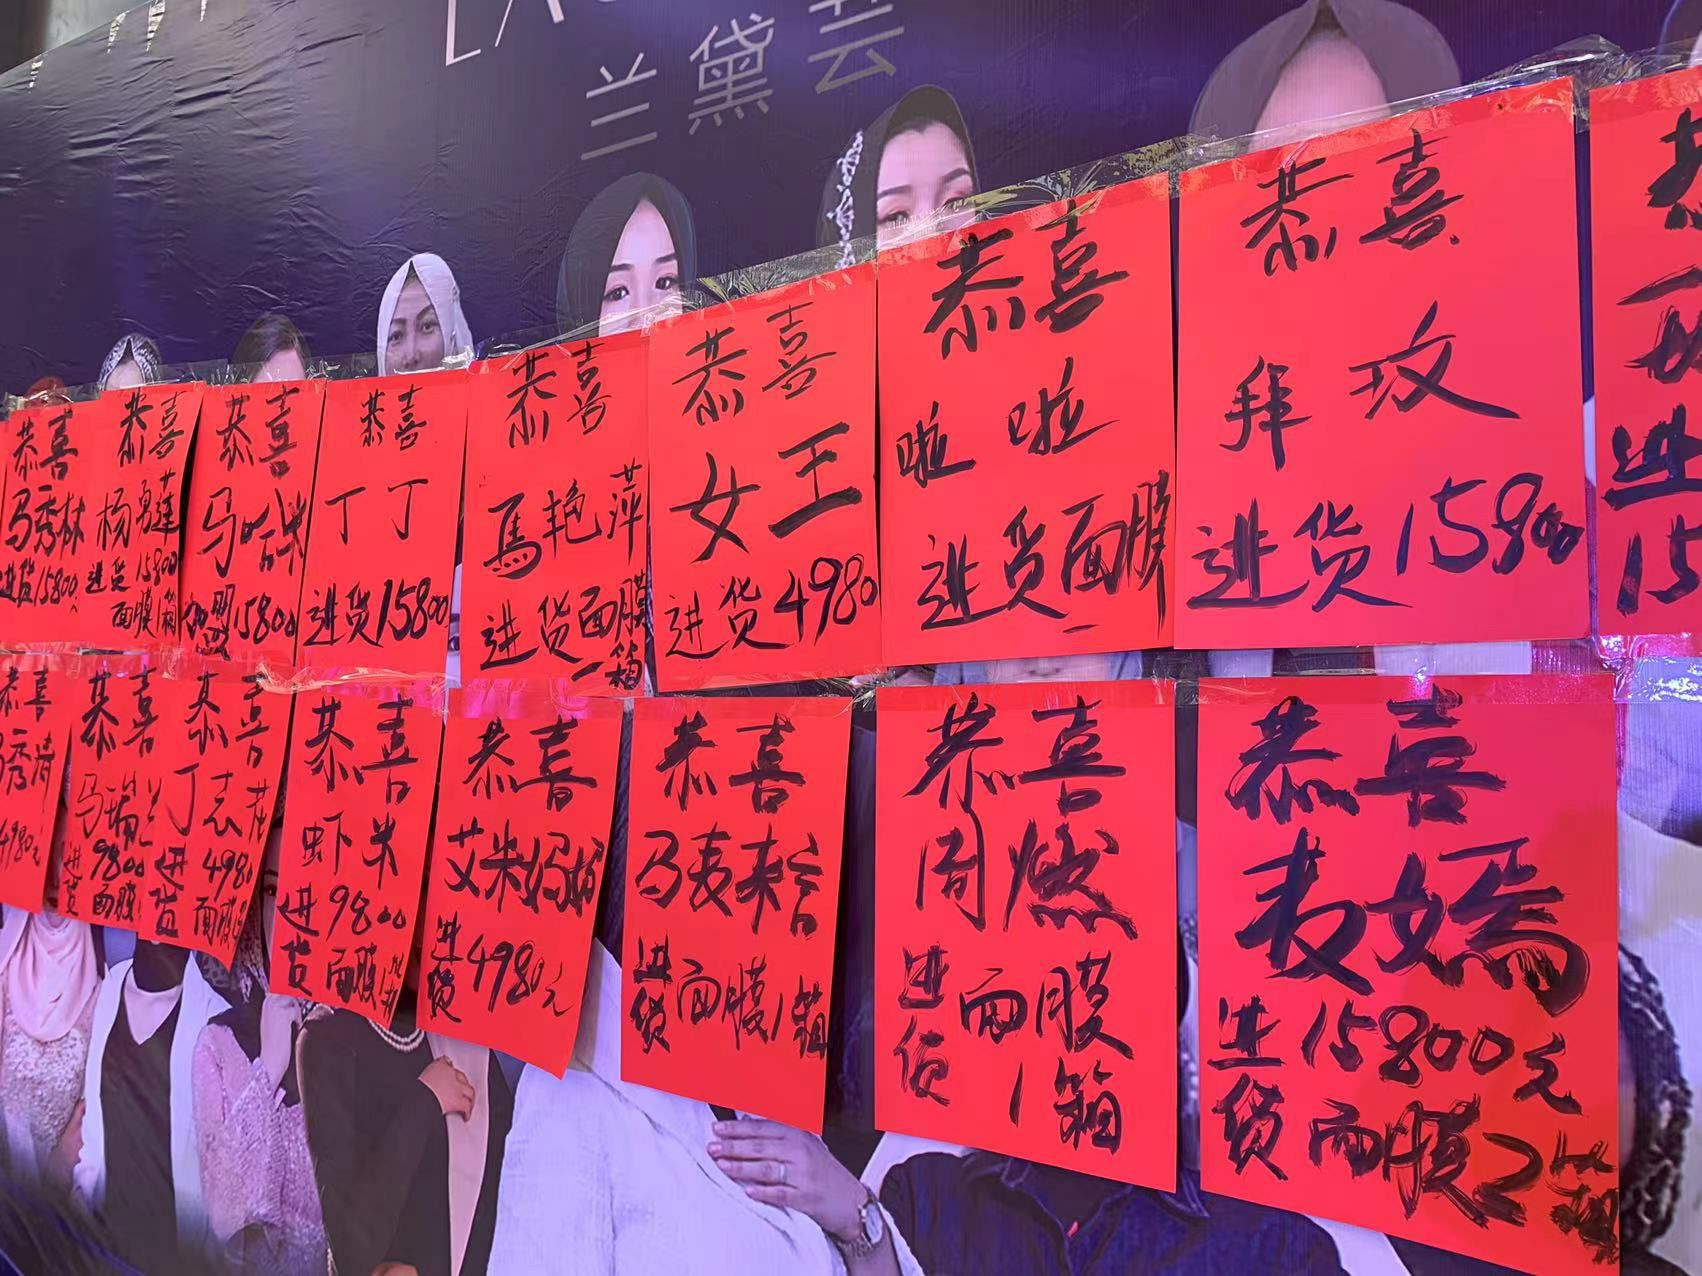 兰黛芸
恭喜
马秀林
进货15800
恭喜
杨勇莲
进货15800
面膜1箱
恭喜
马哈米
加盟15800
恭喜
丁丁
进货15800
恭喜
馬艳萍
进货面膜
一箱
恭喜
女王
进货4980
恭喜
啦啦
进货面膜
恭喜
拜玟
进货15800
进
15
恭喜
马秀清
4980元
恭喜
马瑞兰
进货
9800
面膜1
恭喜
丁志花
进货
4980
面膜
恭喜
虾米
进货
9800
面膜1箱
恭喜
艾米妈妈
进货4980元
恭喜
马麦
进货面膜1箱
恭喜
周燃
进货面膜
1箱
恭喜
麦嫣
进货15800元
面膜2箱